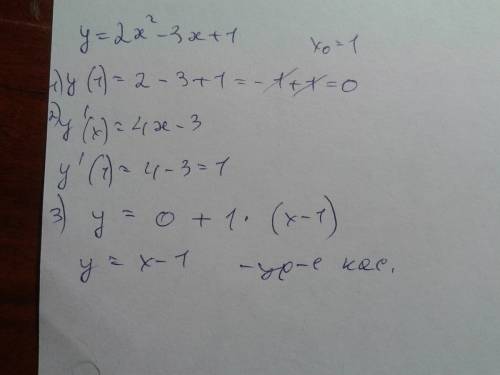 y = 2x² - 3x + 1    x₀ = 1
1) y(1) = 2 - 3 + 1 = -1 + 1 = 0
2) y'(x) = 4x - 3
y'(1) = 4 - 3 = 1
3) y = 0 + 1 · (x - 1)
y = x - 1    - ур-е кас.